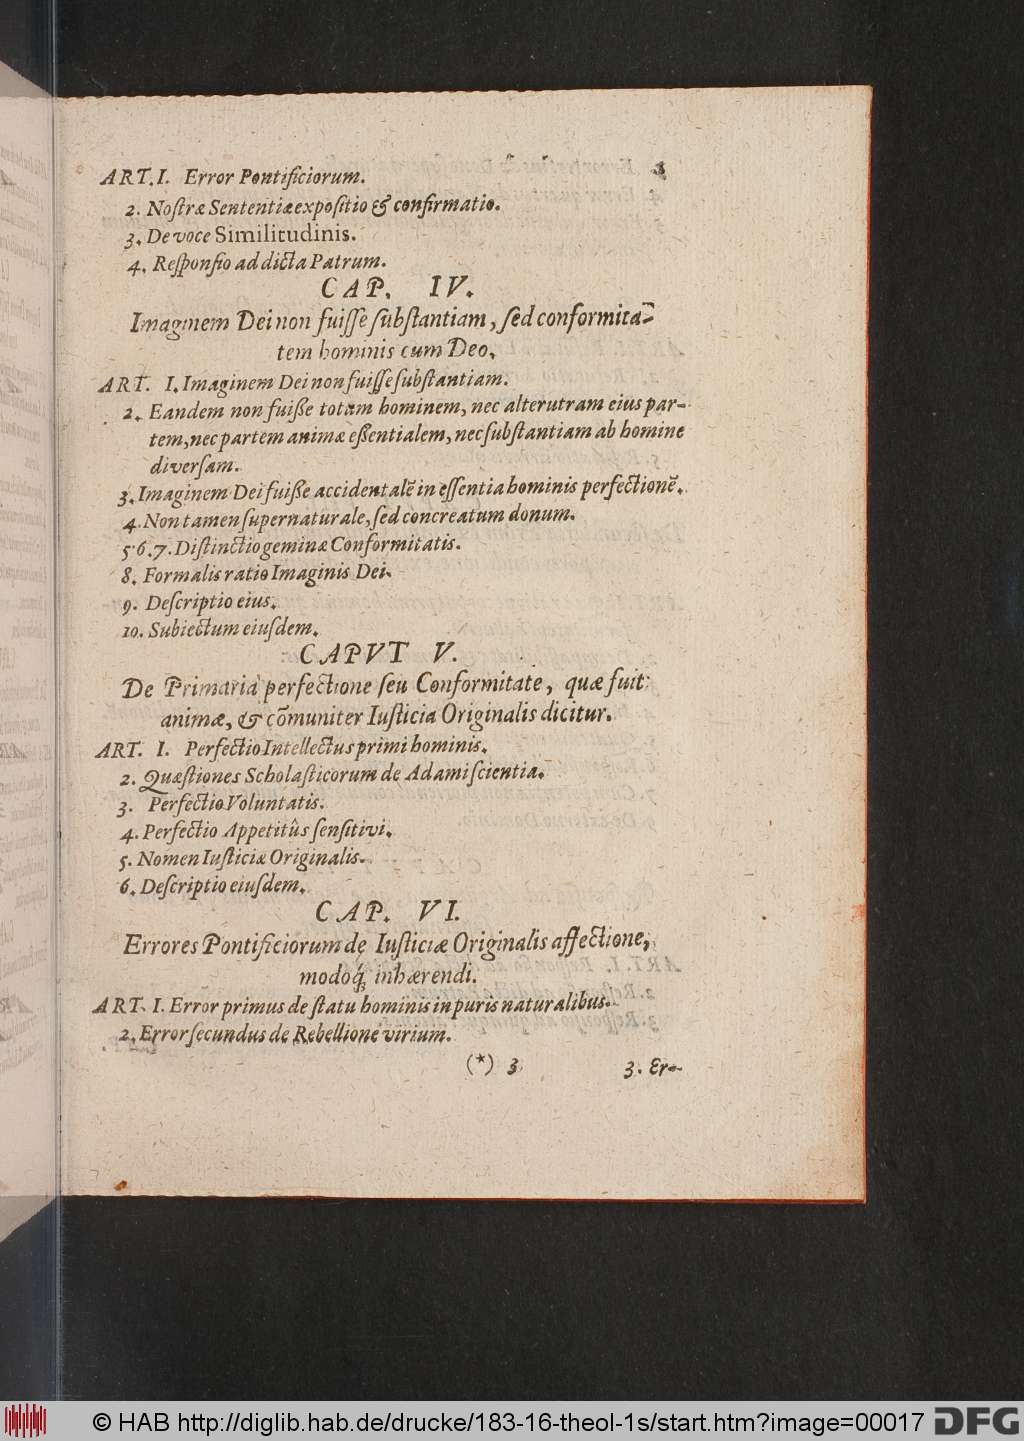 ART. I. Error Pontificiorum.
2. Noſtræ Sententiæ expoſitio & confirmatio.
3. De voce Similitudinis.
4. Reſponſio ad dicta Patrum.
CAP. IV.
Imaginem Dei non fuiſſe ſubſtantiam, ſed conformita-
tem hominis cum Deo.
ART. I. Imaginem Dei non fuiſſe ſubſtantiam.
2. Eandem non fuiße totam hominem, nec alterutram eius par-
tem, nec partem animæ eßentialem, nec ſubſtantiam ab homine
diverſam.
3. Imaginem Dei fuiße accidentalẽ in eſſentia hominis perfectionẽ.
4. Non tamen ſupernaturale, ſed concreatum donum.
5. 6. 7. Diſtinctio geminæ Conformitatis.
8. Formalis ratio Imaginis Dei.
9. Deſcriptio eius.
10. Subiectum eiuſdem.
CAPVT V.
De Primaria perfectione ſeu Conformitate, quæ fuit
animæ, & cõmuniter Iuſticia Originalis dicitur.
ART. I. Perfectio Intellectus primi hominis.
2. Quæſtiones Scholaſticorum de Adami ſcientia.
3. Perfectio Voluntatis.
4. Perfectio Appetitûs ſenſitivi.
5. Nomen Iuſticiæ Originalis.
6. Deſcriptio eiuſdem.
CAP. VI.
Errores Pontificiorum de Iuſticiæ Originalis affectione,
modoq́; inhærendi.
ART. I. Error primus de ſtatu hominis in puris naturalibus.
2. Error ſecundus de Rebellione virium.
(*) 3 3. Er-
© HAB http://diglib.hab.de/drucke/183-16-theol-1s/start.htm?image=00017 DFG